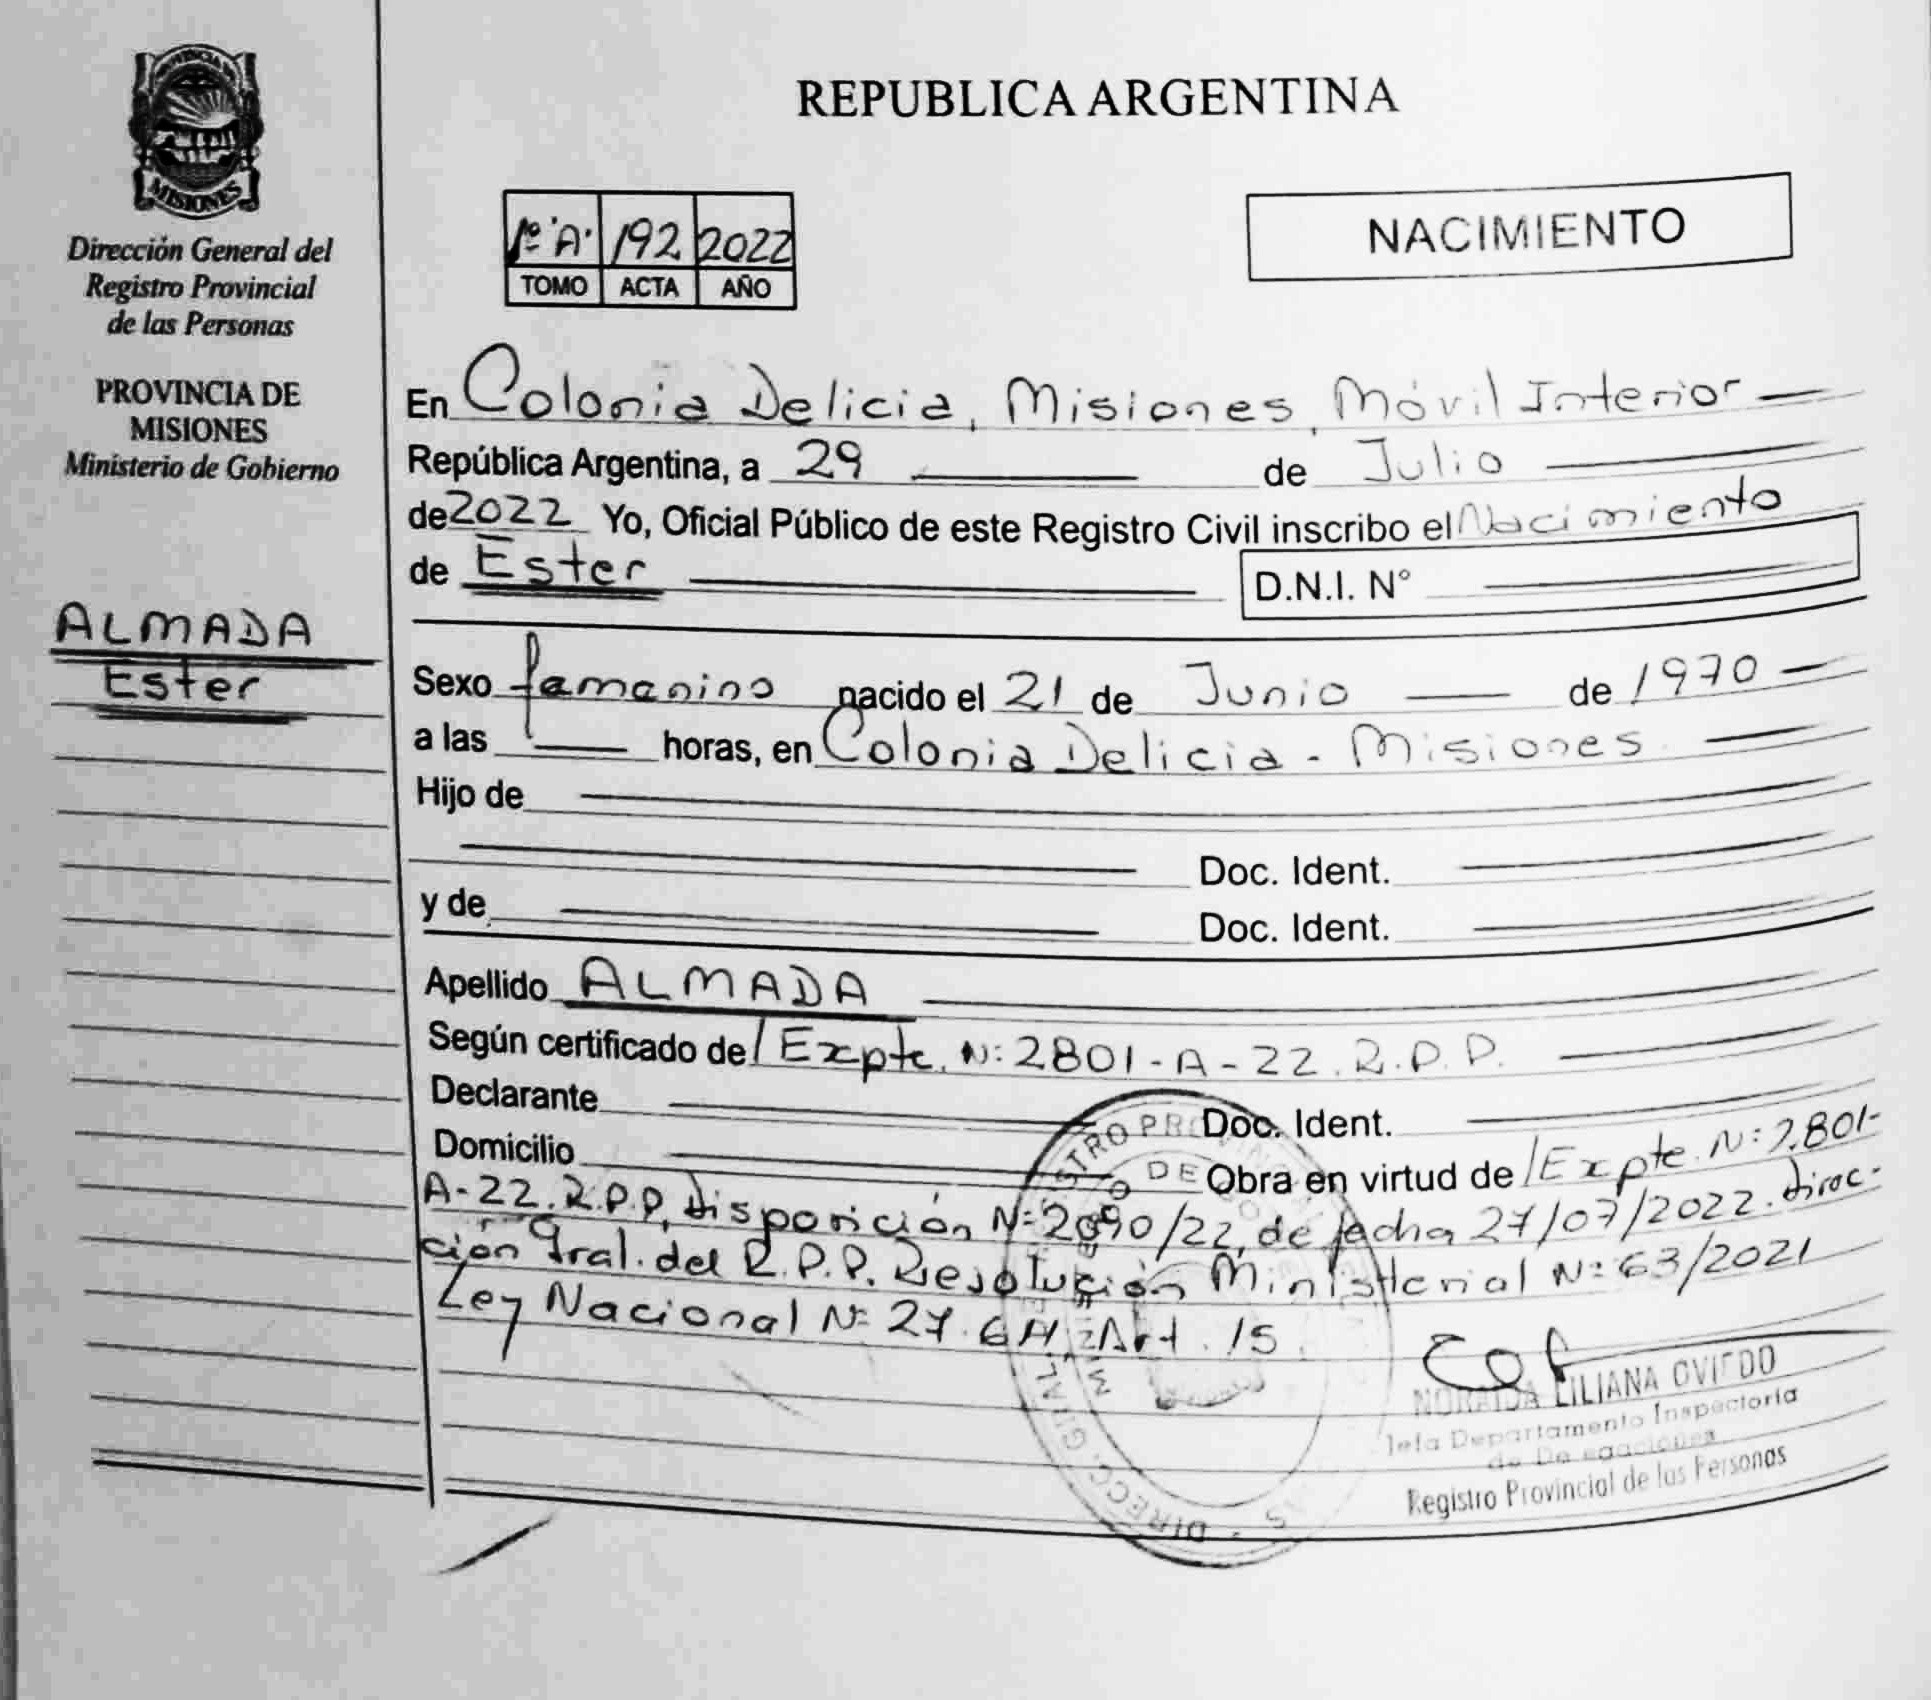 REPUBLICA ARGENTINA
PROVINCIA DE
MISIONES
Dirección General del
Registro Provincial
de las Personas
PROVINCIA DE
MISIONES
Ministerio de Gobierno
ALMADA
Ester
1º "A" 192 2022
TOMO ACTA AÑO
NACIMIENTO
En Colonia Delicia, Misiones, Móvil Interior
República Argentina, a 29 de Julio
de 2022 Yo, Oficial Público de este Registro Civil inscribo el Nacimiento
de Ester D.N.I. N°
Sexo femenino nacido el 21 de Junio de 1970
a las horas, en Colonia Delicia - Misiones
Hijo de
Doc. Ident.
y de Doc. Ident.
Apellido ALMADA
Según certificado de / Expte. Nº 2801-A-22. R.P.P.
Declarante Doc. Ident.
Domicilio Obra en virtud de / Expte. Nº 2801-
A-22. R.P.P. Disposición Nº 2090/22, de fecha 27/07/2022. Direc-
ción Gral. del R.P.P. Resolución Ministerial Nº 63/2021
Ley Nacional Nº 27.611, Art. 15.
LILIANA OVIEDO
Jefa Departamento Inspectoría
de
Registro Provincial de las Personas